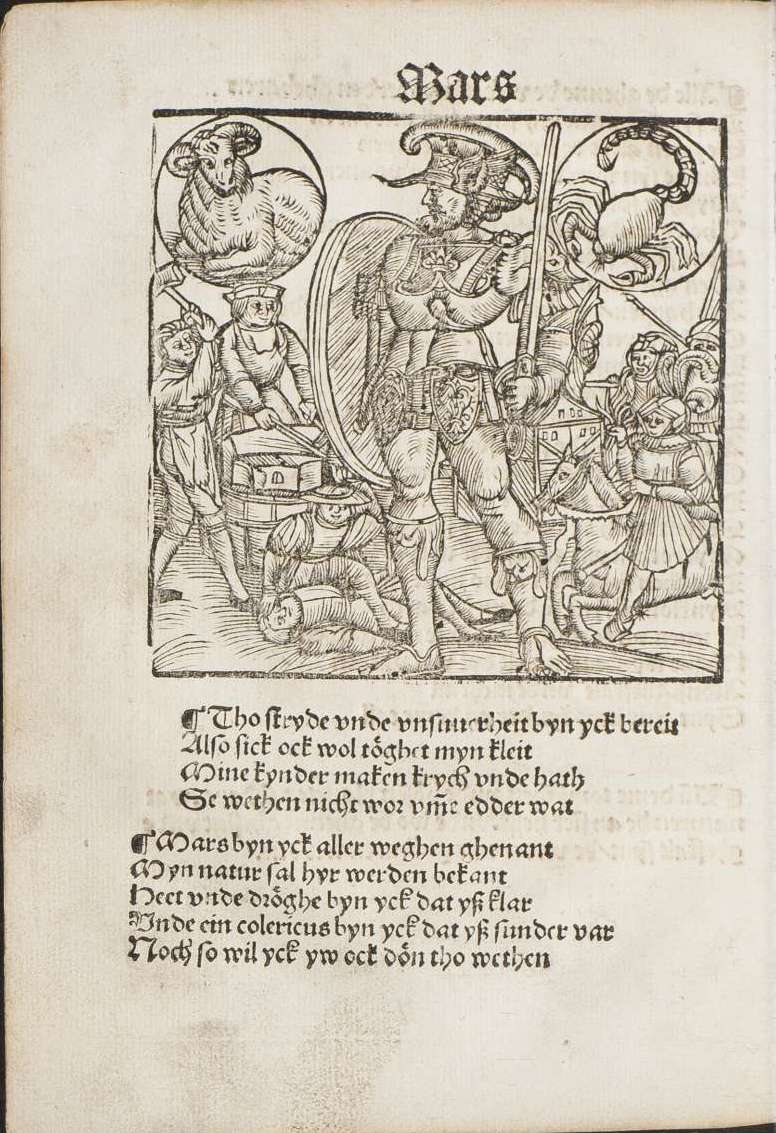 Mars
¶ Tho stryde vnde vnsinnerheit byn yck bereit
Also sick ock wol töghet myn kleit
Mine kynder maken krych vnde hath
Se wethen nicht wor vm̄e edder wat
¶ Mars byn yck aller weghen ghenant
Myn natur sal hyr werden bekant
Heet vnde dröghe byn yck dat yß klar
Vnde ein colericus byn yck dat yß sunder var
Noch so wil yck yw ock dön tho wethen